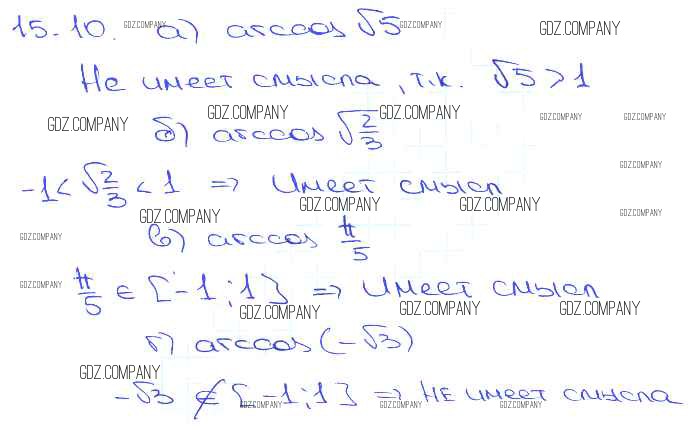 15.10. GDZ.COMPANY а) arccos √5 GDZ.COMPANY GDZ.COMPANY
Не имеет смысла, т.к. √5 > 1
GDZ.COMPANY GDZ.COMPANY б) arccos √2/3 GDZ.COMPANY GDZ.COMPANY GDZ.COMPANY
GDZ.COMPANY
-1 < √2/3 < 1 => Имеет смысл
GDZ.COMPANY GDZ.COMPANY GDZ.COMPANY GDZ.COMPANY
GDZ.COMPANY в) arccos π/5
GDZ.COMPANY π/5 ∈ [-1;1] => Имеет смысл
GDZ.COMPANY GDZ.COMPANY GDZ.COMPANY GDZ.COMPANY
г) arccos(-√3)
GDZ.COMPANY
-√3 ∉ [-1;1] => НЕ имеет смысла
GDZ.COMPANY GDZ.COMPANY GDZ.COMPANY